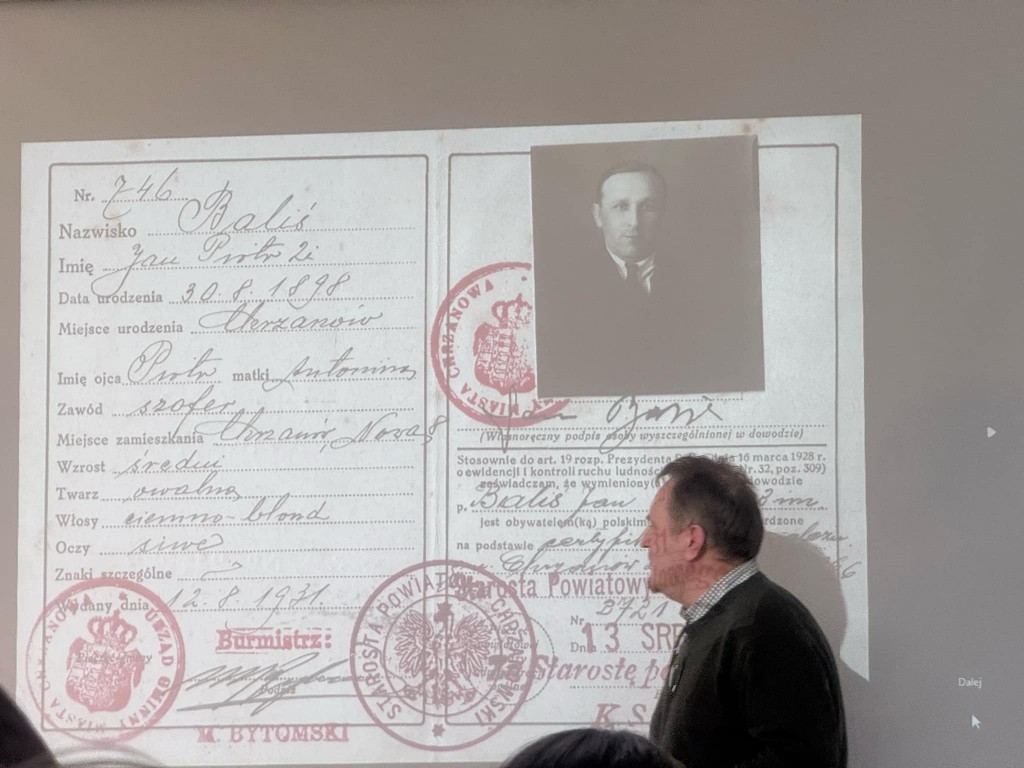 Nr. 746
Nazwisko Baliś
Imię Jan Piotr 2i
Data urodzenia 30.8.1898
Miejsce urodzenia Chrzanów
Imię ojca Piotr matki Antonina
Zawód szofer
Miejsce zamieszkania Chrzanów, Nowa 8
Wzrost średni
Twarz owalna
Włosy ciemno-blond
Oczy siwe
Znaki szczególne
Wydany dnia 12.8.1931.
URZĄD GMINNY MIASTA CHRZANOWA
Burmistrz:
Podpis
M. BYTOMSKI
STAROSTA POWIATOWY CHRZANOWSKI
NY MIASTA CHRZANOWA
(Własnoręczny podpis osoby wyszczególnionej w dowodzie)
Stosownie do art. 19 rozp. Prezydenta dnia 16 marca 1928 r.
o ewidencji i kontroli ruchu ludności Nr. 32, poz. 309)
zaświadczam, że wymieniony dowodzie
p. Baliś Jan 2 im.
jest obywatelem(ką) polskim
na podstawie
Chrzanów
Starosta Powiatowy
Nr 3721
Dn. 13 SRP
Za Starostę po
K. S
Dalej